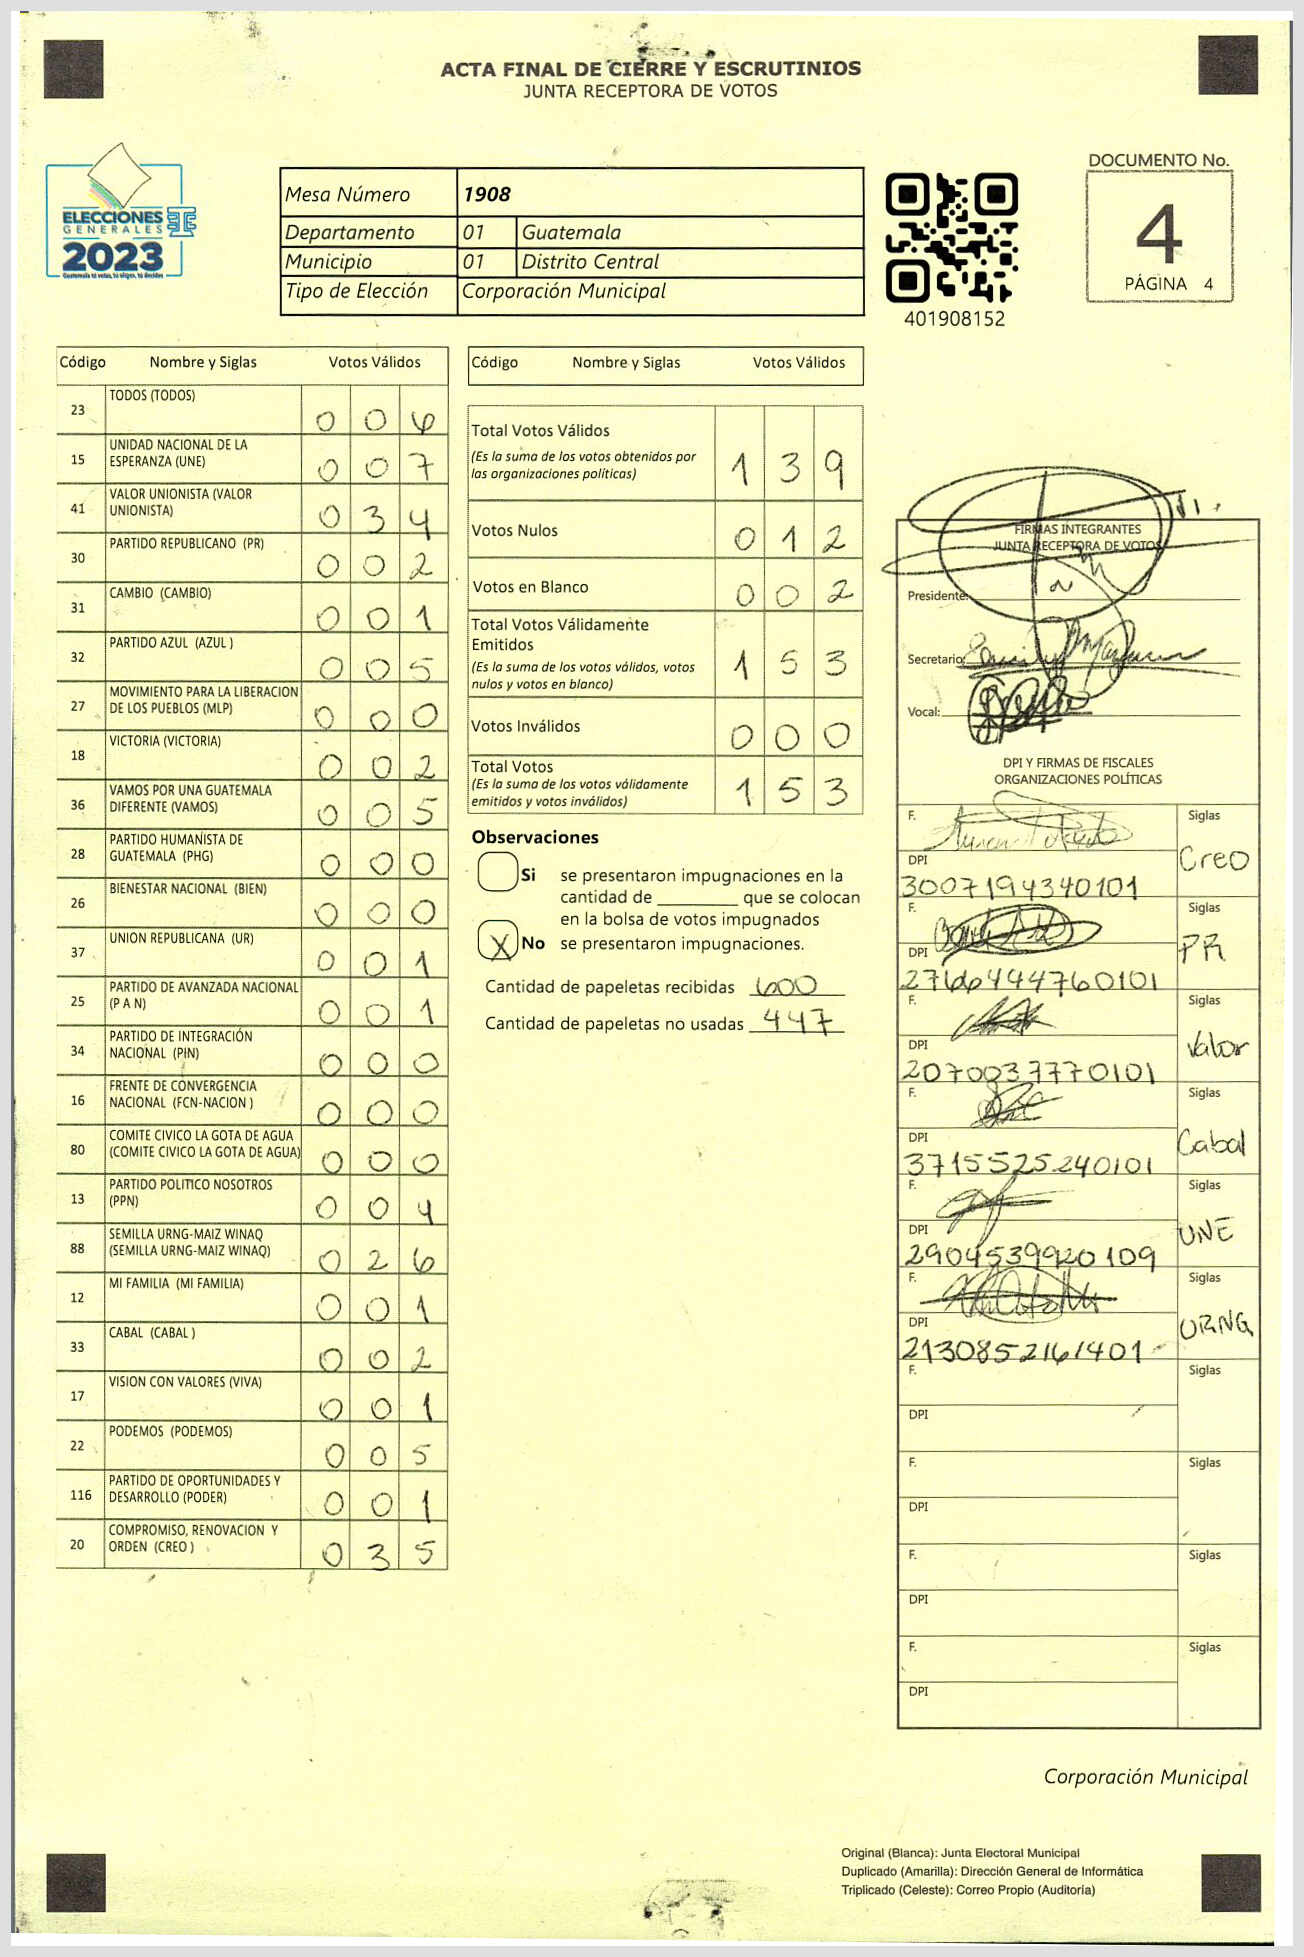 ACTA FINAL DE CIERRE Y ESCRUTINIOS
JUNTA RECEPTORA DE VOTOS
ELECCIONES
GENERALES
2023
Guatemala tú votas, tú eliges, tú decides
Mesa Número 1908
Departamento 01 Guatemala
Municipio 01 Distrito Central
Tipo de Elección Corporación Municipal
401908152
DOCUMENTO No.
4
PÁGINA 4
Código Nombre y Siglas Votos Válidos
23 TODOS (TODOS) 0 0 6
15 UNIDAD NACIONAL DE LA ESPERANZA (UNE) 0 0 7
41 VALOR UNIONISTA (VALOR UNIONISTA) 0 3 4
30 PARTIDO REPUBLICANO (PR) 0 0 2
31 CAMBIO (CAMBIO) 0 0 1
32 PARTIDO AZUL (AZUL ) 0 0 5
27 MOVIMIENTO PARA LA LIBERACION DE LOS PUEBLOS (MLP) 0 0 0
18 VICTORIA (VICTORIA) 0 0 2
36 VAMOS POR UNA GUATEMALA DIFERENTE (VAMOS) 0 0 5
28 PARTIDO HUMANISTA DE GUATEMALA (PHG) 0 0 0
26 BIENESTAR NACIONAL (BIEN) 0 0 0
37 UNION REPUBLICANA (UR) 0 0 1
25 PARTIDO DE AVANZADA NACIONAL (P A N) 0 0 1
34 PARTIDO DE INTEGRACIÓN NACIONAL (PIN) 0 0 0
16 FRENTE DE CONVERGENCIA NACIONAL (FCN-NACION ) 0 0 0
80 COMITE CIVICO LA GOTA DE AGUA (COMITE CIVICO LA GOTA DE AGUA) 0 0 0
13 PARTIDO POLITICO NOSOTROS (PPN) 0 0 4
88 SEMILLA URNG-MAIZ WINAQ (SEMILLA URNG-MAIZ WINAQ) 0 2 6
12 MI FAMILIA (MI FAMILIA) 0 0 1
33 CABAL (CABAL ) 0 0 2
17 VISION CON VALORES (VIVA) 0 0 1
22 PODEMOS (PODEMOS) 0 0 5
116 PARTIDO DE OPORTUNIDADES Y DESARROLLO (PODER) 0 0 1
20 COMPROMISO, RENOVACION Y ORDEN (CREO ) 0 3 5
Código Nombre y Siglas Votos Válidos
Total Votos Válidos
(Es la suma de los votos obtenidos por
las organizaciones políticas) 1 3 9
Votos Nulos 0 1 2
Votos en Blanco 0 0 2
Total Votos Válidamente
Emitidos
(Es la suma de los votos válidos, votos
nulos y votos en blanco) 1 5 3
Votos Inválidos 0 0 0
Total Votos
(Es la suma de los votos válidamente
emitidos y votos inválidos) 1 5 3
Observaciones
Si se presentaron impugnaciones en la
cantidad de ________ que se colocan
en la bolsa de votos impugnados
X No se presentaron impugnaciones.
Cantidad de papeletas recibidas 600
Cantidad de papeletas no usadas 447
FIRMAS INTEGRANTES
JUNTA RECEPTORA DE VOTOS
Presidente:
Secretario:
Vocal:
DPI Y FIRMAS DE FISCALES
ORGANIZACIONES POLÍTICAS
F. Siglas
DPI Creo
3007194340101
F. Siglas
DPI PR
2766444760101
F. Siglas
DPI Valor
2070037770101
F. Siglas
DPI Cabal
3715525240101
F. Siglas
DPI UNE
2904539920109
F. Siglas
DPI URNG
2130852161401
F. Siglas
DPI
F. Siglas
DPI
F. Siglas
DPI
F. Siglas
DPI
Corporación Municipal
Original (Blanca): Junta Electoral Municipal
Duplicado (Amarilla): Dirección General de Informática
Triplicado (Celeste): Correo Propio (Auditoría)